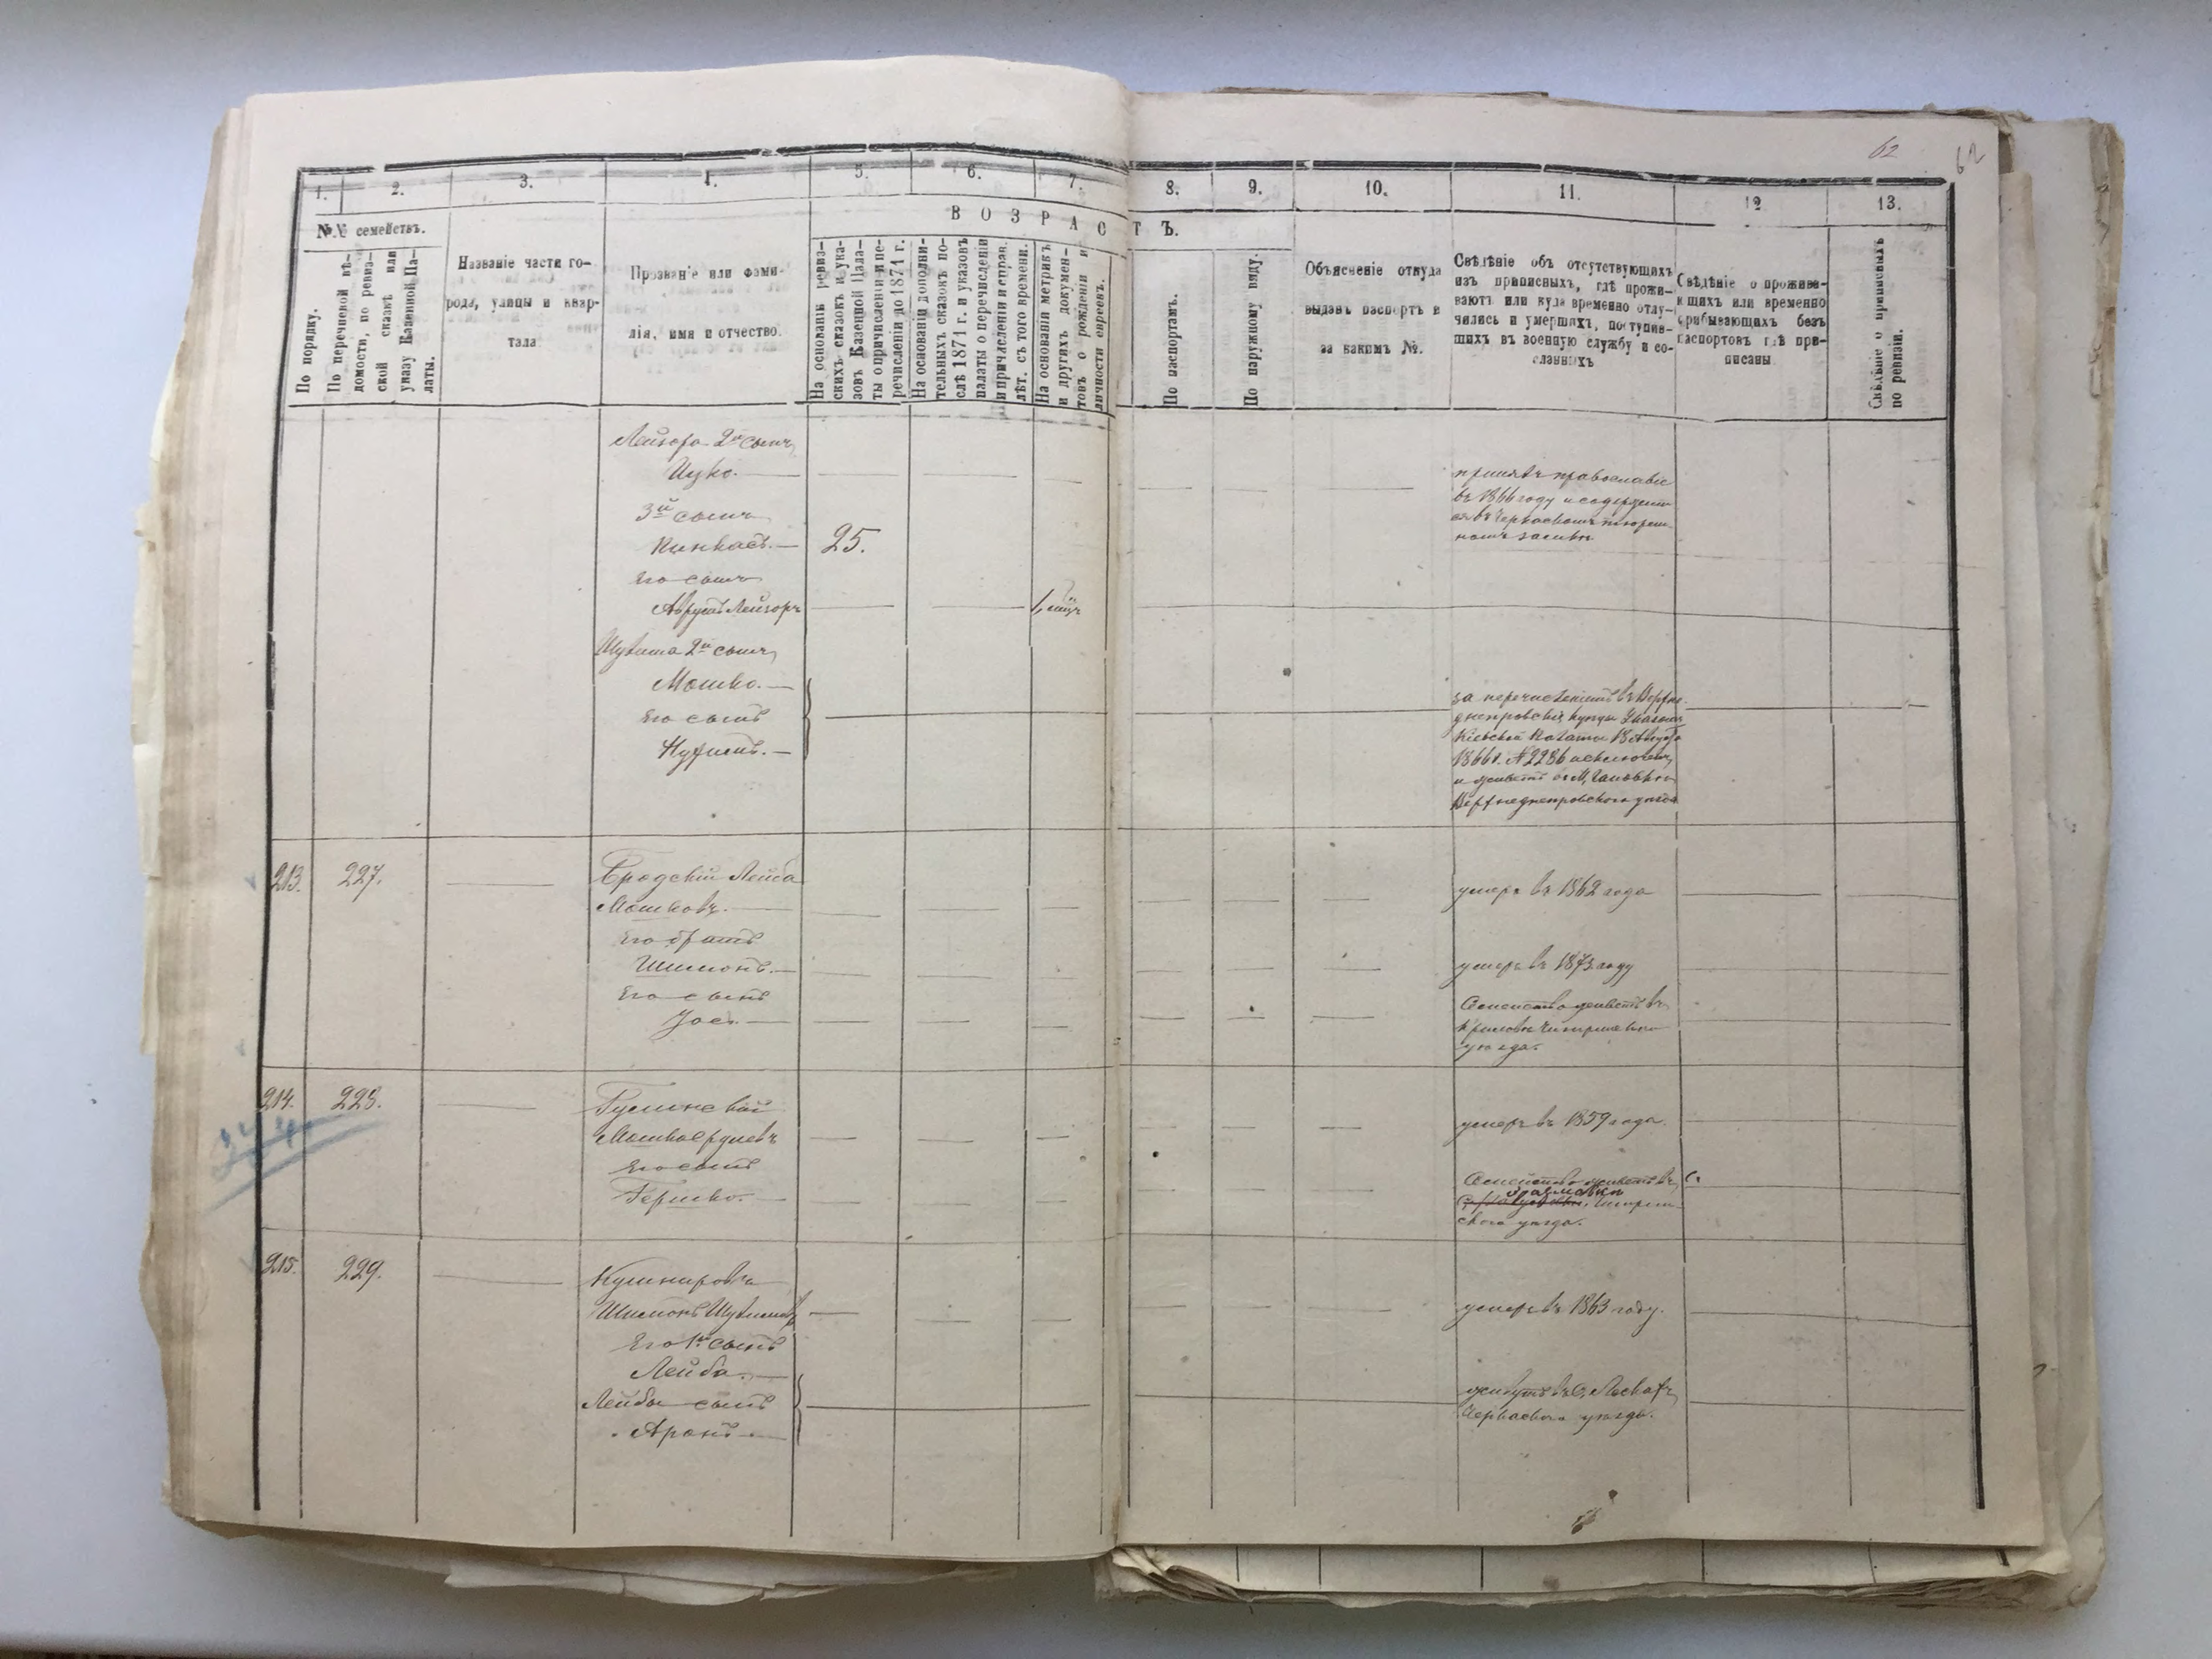 62
62
1.
2.
3.
4.
5.
6.
7.
8.
9.
10.
11.
12
13.
№№ семействъ.
ВОЗРАСТЪ.
По порядку.
По перечневой вѣ-
домости, по ревиз-
ской сказкѣ или
указу Казенной Па-
латы.
Названіе части го-
рода, улицы и квар-
тала
Прозваніе или фами-
лія, имя и отчество.
На основаніи ревиз-
скихъ сказокъ и ука-
зовъ Казенной Пала-
ты о причисленіи и пе-
речисленіи до 1871 г.
На основаніи дополни-
тельныхъ сказокъ по-
слѣ 1871 г. и указовъ
палаты о перечисленіи
и причисленіи и справ.
лѣт. съ того времени.
На основаніи метрикъ
и другихъ докумен-
товъ о рожденіи и
личности евреевъ.
По паспортамъ.
По наружному виду.
Объясненіе откуда
выданъ паспортъ и
за какимъ №.
Свѣдѣніе объ отсутствующихъ
изъ приписныхъ, гдѣ прожи-
ваютъ или куда временно отлу-
чились и умершихъ, поступив-
шихъ въ военную службу и со-
сланныхъ
Свѣдѣніе о прожива-
ющихъ или временно
прибывающихъ безъ
паспортовъ гдѣ при-
писаны
Свѣдѣніе о приписныхъ
по ревизіи.
Лейзора 2й сынъ
Ицко.
принялъ православіе
въ 1866 году и содержит
ся въ Черкаскомъ тюрем
номъ замкѣ
3й сынъ
Пинхасъ. 25.
Его сынъ
Аврумъ Лейзоръ
Шулима 2й сынъ
Мошко.
Его сынъ
Нухимъ.
за перечисленіемъ въ Верхне-
днепровскіе купцы Указомъ
Кіевской Палаты 18 Августа
1866 г. № 2286 исключенъ,
и живетъ въ М.
Верхнеднепровского уезда
213. 227.
Бродскій Лейба
Мошковъ.
умеръ въ 1862 года
Его братъ
Шимонъ.
умеръ въ 1873 году
Его сынъ
Іось.
Семейство живетъ въ
Крылове Чигиринского
уезда.
214. 228.
Мошко Срулевъ
умеръ въ 1859 года.
Его сынъ
Гершко.
Семейство живетъ въ С.
Чигирин
ского уезда.
215. 229.
Кушнировъ
Шимонъ Шулимовъ
умеръ въ 1863 году.
Его 1й сынъ
Лейба.
Лейбы сынъ
Аронъ
живутъ въ С. Леськахъ
Черкаского уезда.